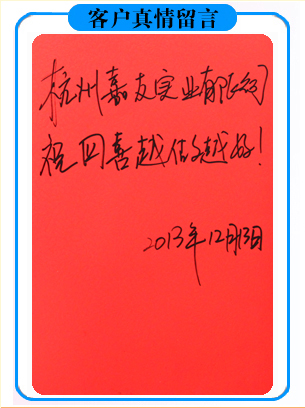 客户真情留言
杭州嘉友实业有限公司
祝四喜越做越好!
2013年12月13日